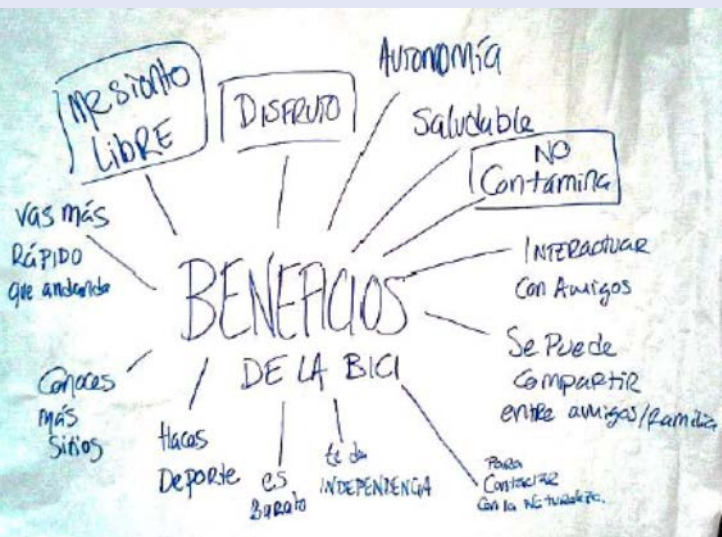 Me siento
LIBRE
DISFRUTO
AUTONOMÍA
Saludable
NO
Contamina
INTERACTUAR
Con Amigos
Se Puede
Compartir
entre amigos/familia
Para
Contactar
Con la Naturaleza.
te da
INDEPENDENCIA
es
Barato
Haces
DePORte
Conoces
más
Sitios
Vas más
RÁPIDO
que andando
BENEFICIOS
DE LA BICI